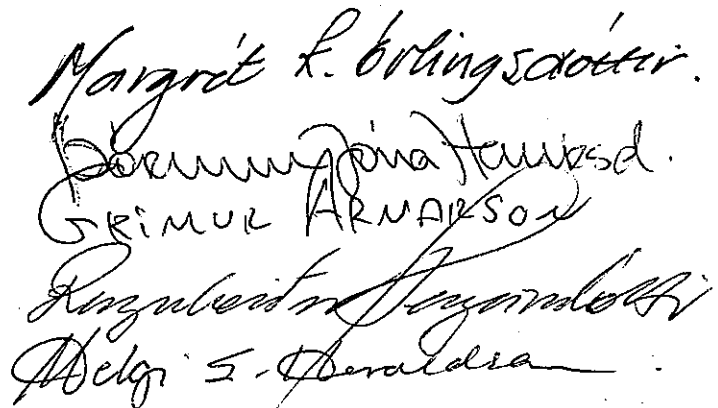 Margrét K. Örlingsdóttir.
Þórunn Jóna Hauksd.
GRÍMUR ARNARSON
Ragnheiður
Helgi S. Haraldsson